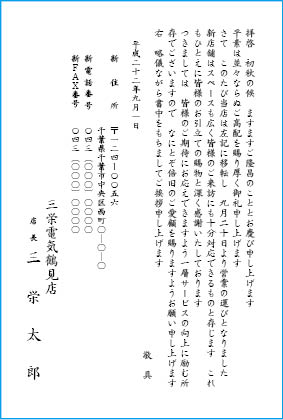 拝啓　初秋の候　ますますご隆昌のこととお慶び申し上げます
平素は並々ならぬご高配を賜り厚く御礼申し上げます
さて　このたび当店は左記に移転し　九月二十日より営業の運びとなりました
新店舗はスペースも広く皆様のご来訪にも十分対応できるものと存じます　これ
もひとえに皆様のお引立ての賜物と深く感謝いたしております
つきましては　皆様のご期待にお応えできますよう一層サービスの向上に励む所
存でございますので　なにとぞ倍旧のご愛顧を賜りますようお願い申し上げます
右　略儀ながら書中をもちましてご挨拶申し上げます
敬具
平成二十二年九月一日
新住所　〒一二四－〇〇五六
千葉県千葉市中央区西町〇－〇－〇
新電話番号　〇四三（〇〇〇）〇〇〇〇
新ＦＡＸ番号　〇四三（〇〇〇）〇〇〇〇
三栄電気鶴見店
店長　三栄太郎